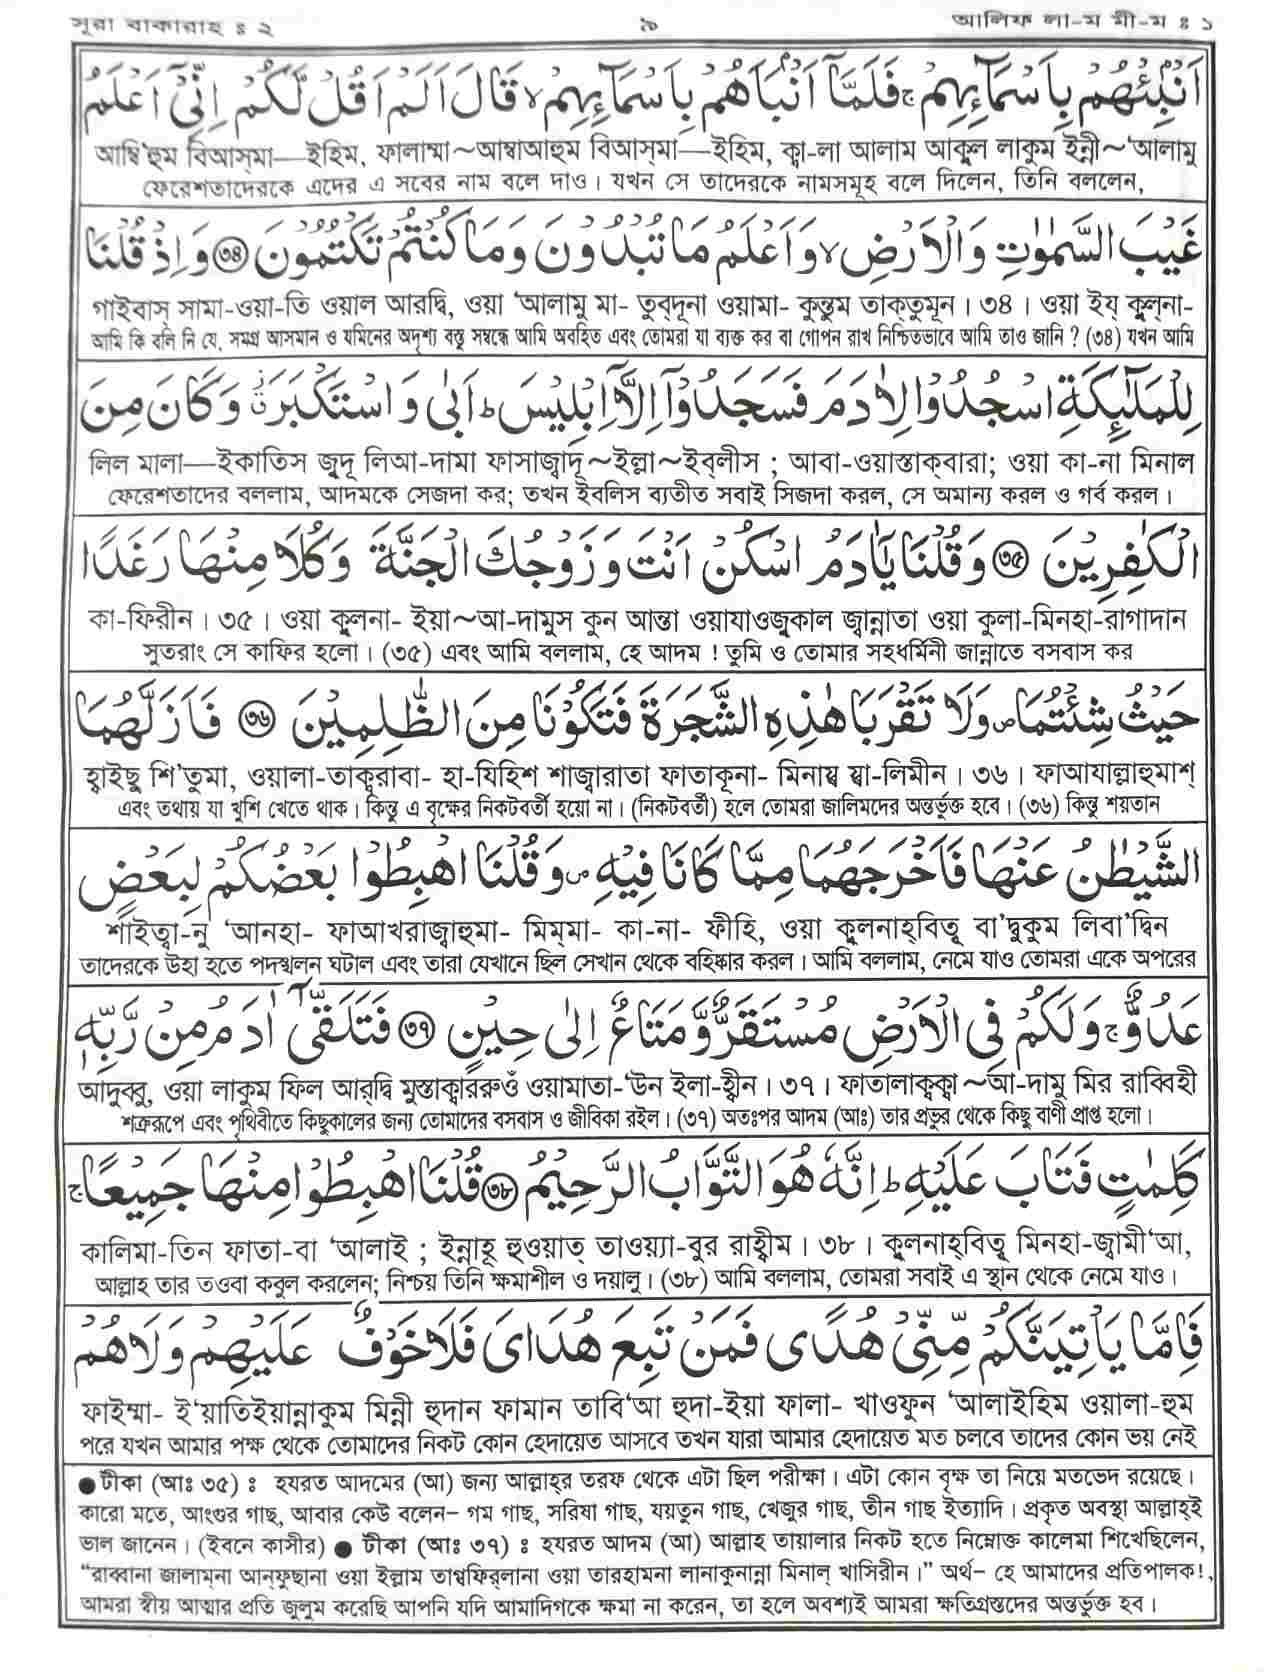 সূরা বাকারাহ ঃ ২ ৯ আলিফ লা-ম মী-ম ঃ ১
اَنْۢبِئْهُمْ بِاَسْمَآئِهِمْ ۚ فَلَمَّآ اَنْۢبَاَهُمْ بِاَسْمَآئِهِمْ ۙ قَالَ اَلَمْ اَقُلْ لَّكُمْ اِنِّىْٓ اَعْلَمُ
আম্বি’হুম বিআস্‌মা—ইহিম, ফালাম্মা~আম্বাআহুম বিআস্‌মা—ইহিম, ক্বা-লা আলাম আক্বুল লাকুম ইন্নী~‘আলামু
ফেরেশতাদেরকে এদের এ সবের নাম বলে দাও। যখন সে তাদেরকে নামসমূহ বলে দিলেন, তিনি বললেন,
غَيْبَ السَّمٰوٰتِ وَالْاَرْضِ ۙ وَاَعْلَمُ مَا تُبْدُوْنَ وَمَا كُنْتُمْ تَكْتُمُوْنَ ﴿৩৪﴾ وَاِذْ قُلْنَا
গাইবাস্ সামা-ওয়া-তি ওয়াল আরদ্বি, ওয়া ‘আলামু মা- তুব্‌দূনা ওয়ামা- কুন্তুম তাক্‌তুমূন। ৩৪। ওয়া ইয্ ক্বুল্‌না-
আমি কি বলি নি যে, সমগ্র আসমান ও যমিনের অদৃশ্য বস্তু সম্বন্ধে আমি অবহিত এবং তোমরা যা ব্যক্ত কর বা গোপন রাখ নিশ্চিতভাবে আমি তাও জানি ? (৩৪) যখন আমি
لِلْمَلٰٓئِكَةِ اسْجُدُوْا لِاٰدَمَ فَسَجَدُوْٓا اِلَّآ اِبْلِيْسَ ؕ اَبٰى وَاسْتَكْبَرَ ۫ۗ وَكَانَ مِنَ
লিল মালা—ইকাতিস জুদূ লিআ-দামা ফাসাজ্বাদূ~ইল্লা~ইব্‌লীস ; আবা-ওয়াস্তাক্‌বারা; ওয়া কা-না মিনাল
ফেরেশতাদের বললাম, আদমকে সেজদা কর; তখন ইবলিস ব্যতীত সবাই সিজদা করল, সে অমান্য করল ও গর্ব করল।
الْكٰفِرِيْنَ ﴿৩৫﴾ وَقُلْنَا يٰٓاٰدَمُ اسْكُنْ اَنْتَ وَزَوْجُكَ الْجَنَّةَ وَكُلَا مِنْهَا رَغَدًا
কা-ফিরীন। ৩৫। ওয়া ক্বুলনা- ইয়া~আ-দামুস কুন আন্তা ওয়াযাওজুকাল জ্বান্নাতা ওয়া কুলা-মিনহা-রাগাদান
সুতরাং সে কাফির হলো। (৩৫) এবং আমি বললাম, হে আদম ! তুমি ও তোমার সহধর্মিনী জান্নাতে বসবাস কর
حَيْثُ شِئْتُمَا ۪ وَلَا تَقْرَبَا هٰذِهِ الشَّجَرَةَ فَتَكُوْنَا مِنَ الظّٰلِمِيْنَ ﴿৩৬﴾ فَاَزَلَّهُمَا
হ্বাইছু শি’তুমা, ওয়ালা-তাক্বরাবা- হা-যিহিশ শাজ্বারাতা ফাতাকূনা- মিনায্ যা-লিমীন। ৩৬। ফাআযাল্লাহুমাশ্
এবং তথায় যা খুশি খেতে থাক। কিন্তু এ বৃক্ষের নিকটবর্তী হয়ো না। (নিকটবর্তী) হলে তোমরা জালিমদের অন্তর্ভুক্ত হবে। (৩৬) কিন্তু শয়তান
الشَّيْطٰنُ عَنْهَا فَاَخْرَجَهُمَا مِمَّا كَانَا فِيْهِ ۪ وَقُلْنَا اهْبِطُوْا بَعْضُكُمْ لِبَعْضٍ
শাইত্বা-নু ‘আনহা- ফাআখরাজ্বাহুমা- মিম্‌মা- কা-না- ফীহি, ওয়া ক্বুলনাহ্‌বিতূ বা’দ্বুকুম লিবা’দ্বিন
তাদেরকে উহা হতে পদস্খলন ঘটাল এবং তারা যেখানে ছিল সেখান থেকে বহিষ্কার করল। আমি বললাম, নেমে যাও তোমরা একে অপরের
عَدُوٌّ ۚ وَلَكُمْ فِى الْاَرْضِ مُسْتَقَرٌّ وَّمَتَاعٌ اِلٰى حِيْنٍ ﴿৩৭﴾ فَتَلَقّٰىٓ اٰدَمُ مِنْ رَّبِّهٖ
আদুব্বু, ওয়া লাকুম ফিল আর্‌দ্বি মুস্তাক্বার্‌রুওঁ ওয়ামাতা-‘উন ইলা-হ্বীন। ৩৭। ফাতালাক্ব্ক্বা~আ-দামু মির রাব্বিহী
শত্রুরূপে এবং পৃথিবীতে কিছুকালের জন্য তোমাদের বসবাস ও জীবিকা রইল। (৩৭) অতঃপর আদম (আঃ) তার প্রভুর থেকে কিছু বাণী প্রাপ্ত হলো।
كَلِمٰتٍ فَتَابَ عَلَيْهِ ؕ اِنَّهٗ هُوَ التَّوَّابُ الرَّحِيْمُ ﴿৩৮﴾ قُلْنَا اهْبِطُوْا مِنْهَا جَمِيْعًا ۚ
কালিমা-তিন ফাতা-বা ‘আলাই ; ইন্নাহূ হুওয়াত্ তাওয়্যা-বুর রাহ্বীম। ৩৮। ক্বুলনাহ্‌বিতূ মিনহা-জ্বামী‘আ,
আল্লাহ তার তওবা কবুল করলেন; নিশ্চয় তিনি ক্ষমাশীল ও দয়ালু। (৩৮) আমি বললাম, তোমরা সবাই এ স্থান থেকে নেমে যাও।
فَاِمَّا يَاْتِيَنَّكُمْ مِّنِّىْ هُدًى فَمَنْ تَبِعَ هُدَاىَ فَلَا خَوْفٌ عَلَيْهِمْ وَلَا هُمْ
ফাইম্মা- ই‘য়াতিইয়ান্নাকুম মিন্নী হুদান ফামান তাবি‘আ হুদা-ইয়া ফালা- খাওফুন ‘আলাইহিম ওয়ালা-হুম
পরে যখন আমার পক্ষ থেকে তোমাদের নিকট কোন হেদায়েত আসবে তখন যারা আমার হেদায়েত মত চলবে তাদের কোন ভয় নেই
● টীকা (আঃ ৩৫) ঃ হযরত আদমের (আ) জন্য আল্লাহ্‌র তরফ থেকে এটা ছিল পরীক্ষা। এটা কোন বৃক্ষ তা নিয়ে মতভেদ রয়েছে।
কারো মতে, আংগুর গাছ, আবার কেউ বলেন– গম গাছ, সরিষা গাছ, যয়তুন গাছ, খেজুর গাছ, তীন গাছ ইত্যাদি। প্রকৃত অবস্থা আল্লাহ্‌ই
ভাল জানেন। (ইবনে কাসীর) ● টীকা (আঃ ৩৭) ঃ হযরত আদম (আ) আল্লাহ তায়ালার নিকট হতে নিম্নোক্ত কালেমা শিখেছিলেন,
“রাব্বানা জালাম্‌না আন্‌ফুছানা ওয়া ইল্লাম তাগ্বফির্‌লানা ওয়া তারহামনা লানাকুনান্না মিনাল্ খাসিরীন।” অর্থ– হে আমাদের প্রতিপালক!,
আমরা স্বীয় আত্মার প্রতি জুলুম করেছি আপনি যদি আমাদিগকে ক্ষমা না করেন, তা হলে অবশ্যই আমরা ক্ষতিগ্রস্তদের অন্তর্ভুক্ত হব।